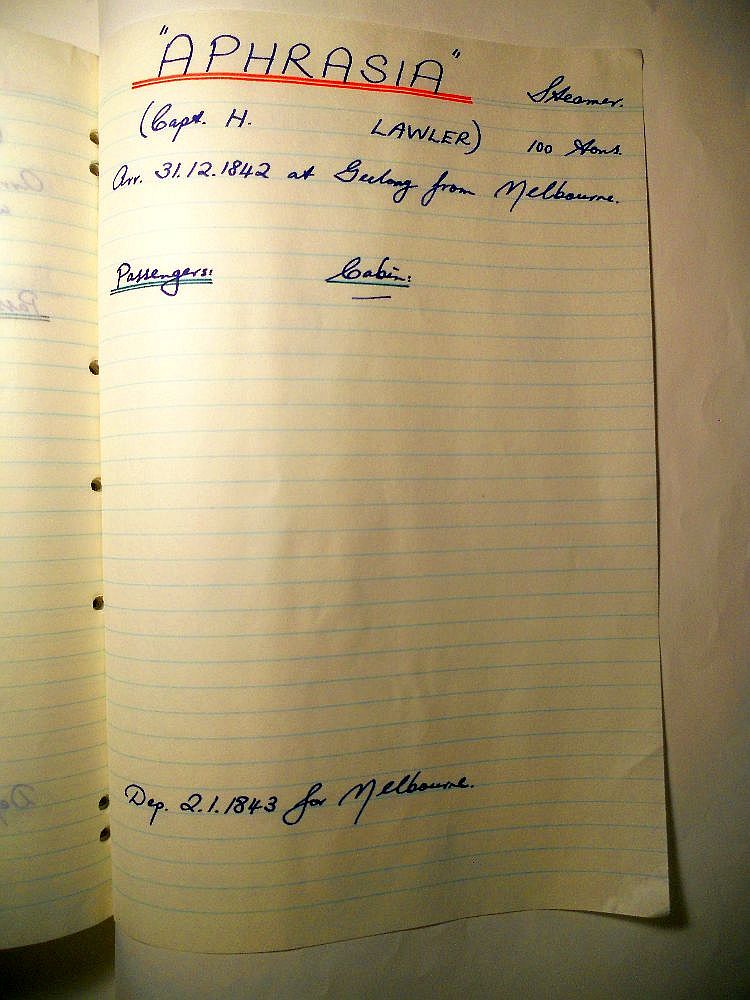 "APHRASIA" Steamer.
(Capt. H. LAWLER) 100 Tons.
Arr. 31.12.1842 at Geelong from Melbourne.
Passengers: Cabin:
Dep. 2.1.1843 for Melbourne.